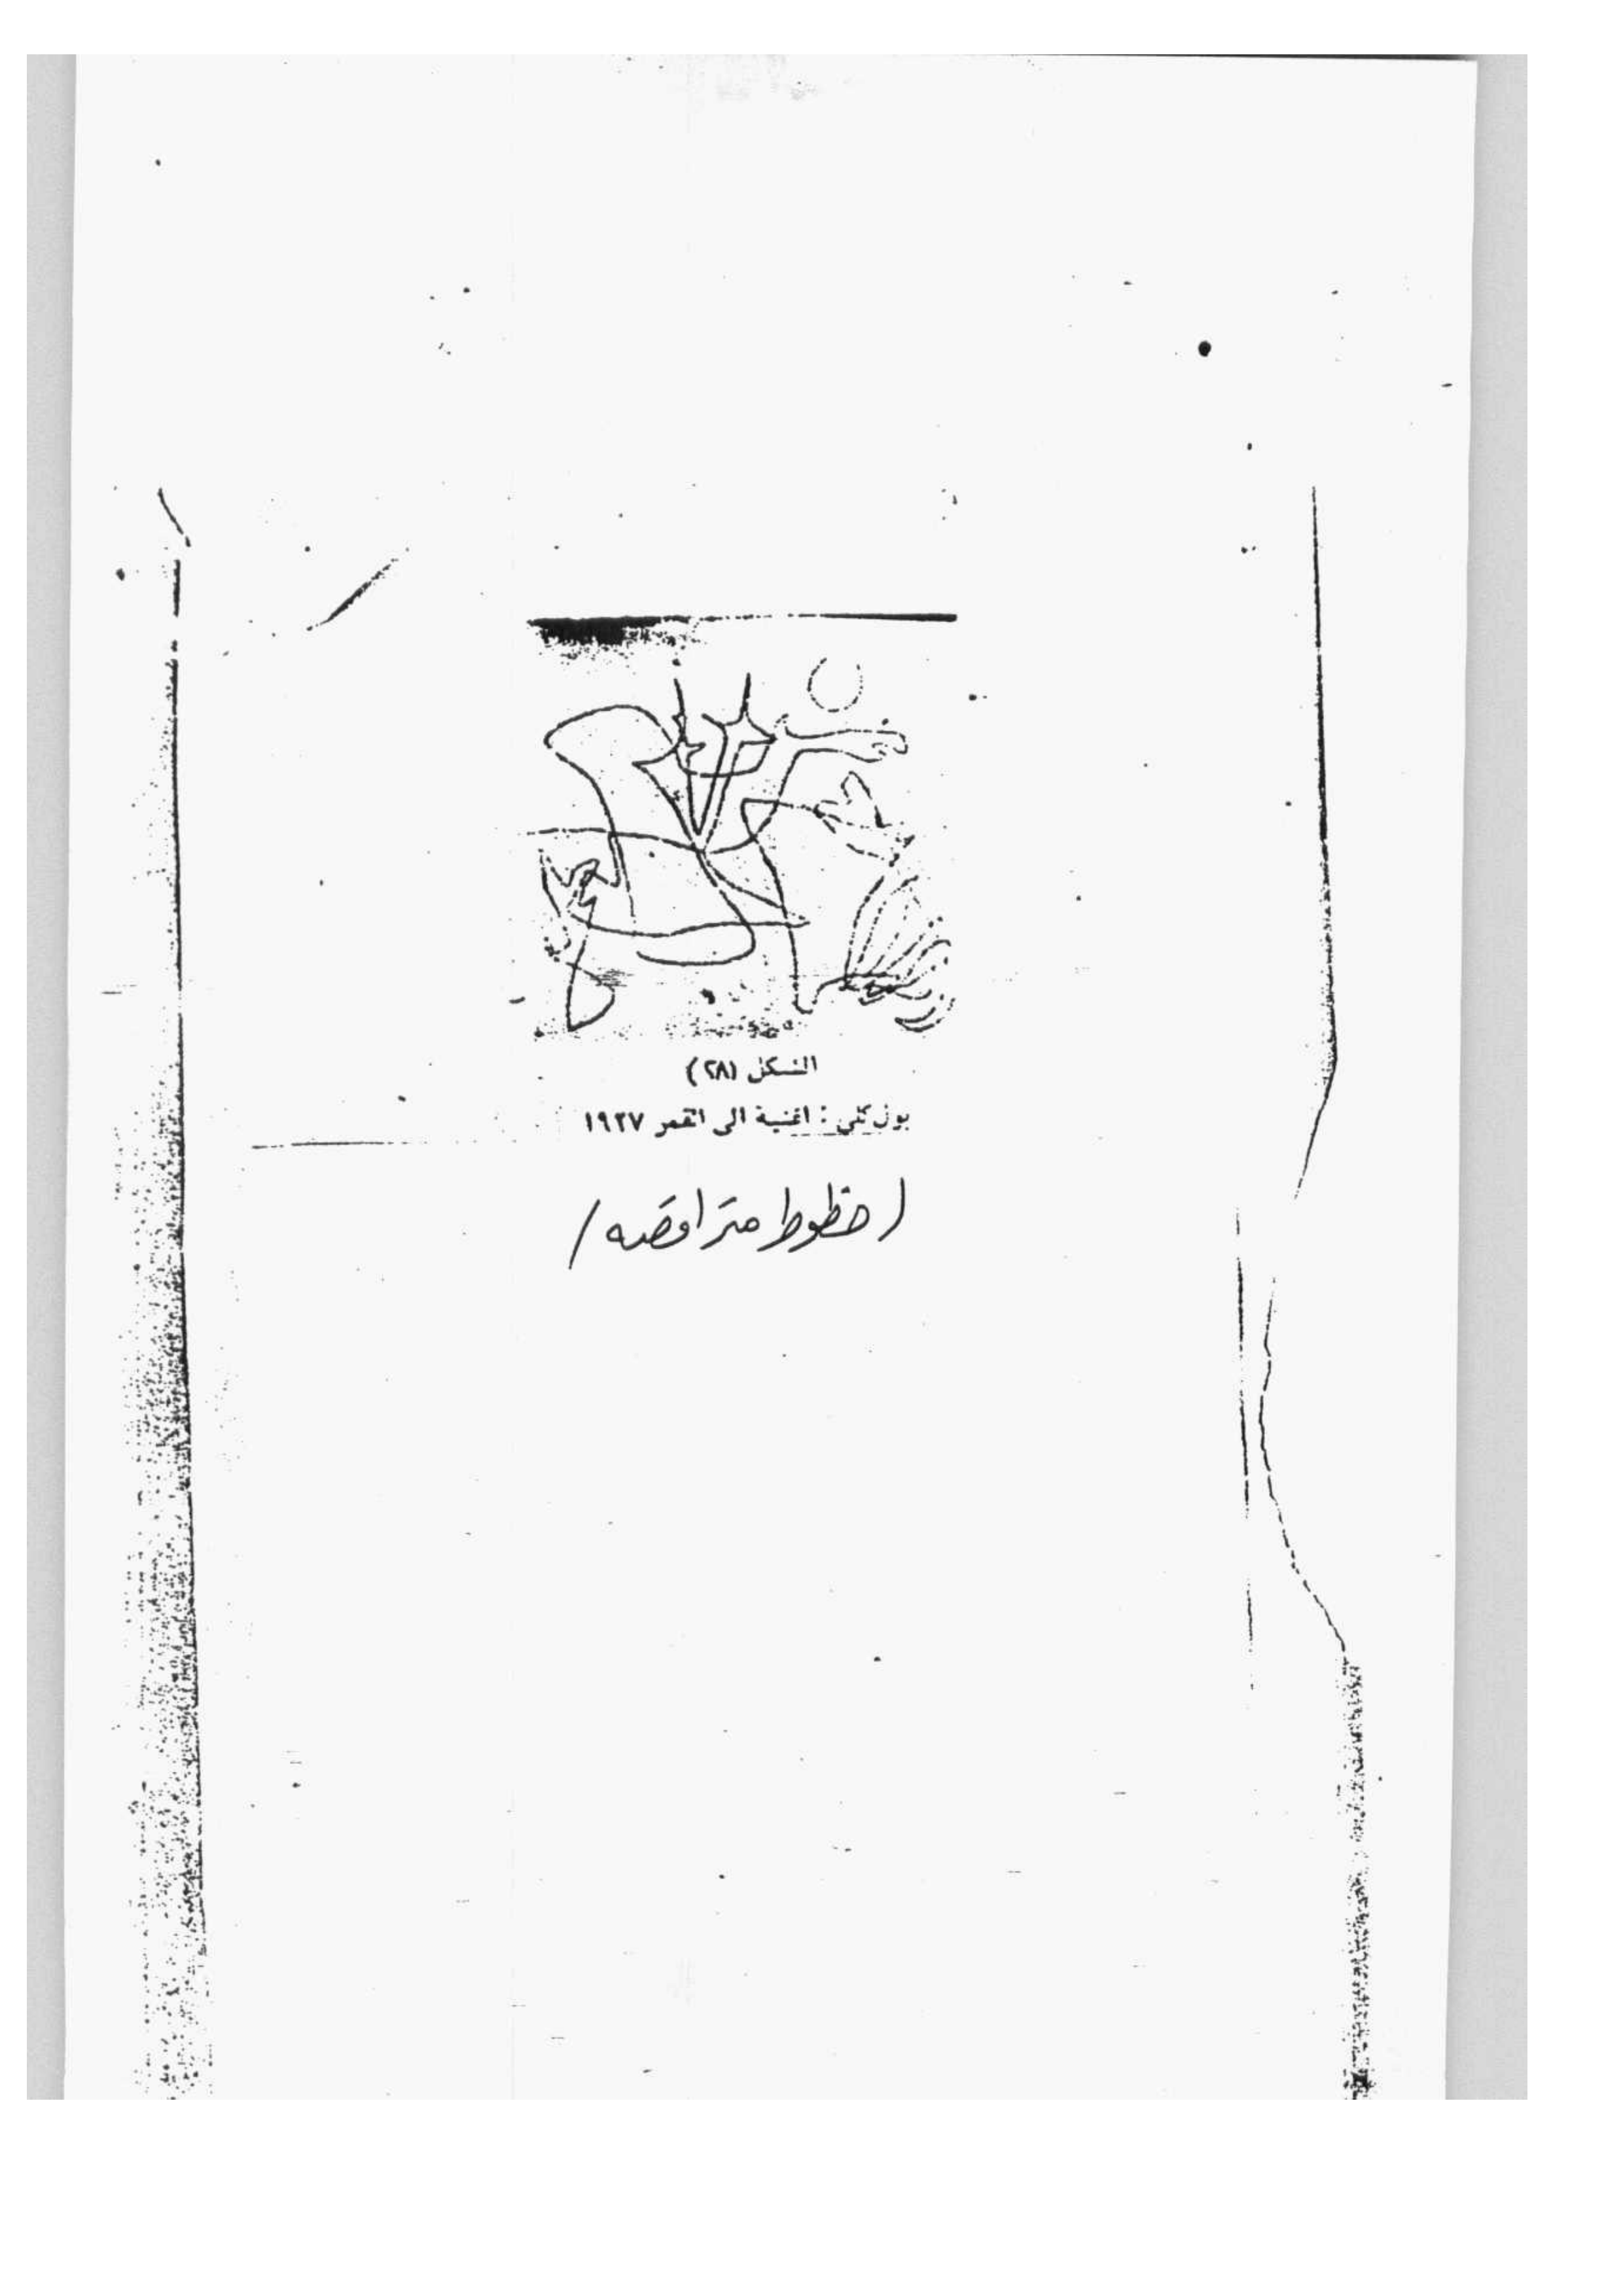 الشكل (٢٨)
بول كلي : اغنية الى القمر ١٩٢٧
(خطوط متراقصه)